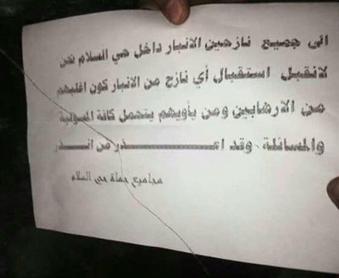 الى جميع نازحين الانبار داخل حي السلام نحن
لانقبل استقبال أي نازح من الانبار كون اغلبهم
من الارهابين ومن يأويهم يتحمل كافة المسؤلية
والمسائلة وقد اعـــــــــــــذر من انـــــــــذر
مجاميع حملة حي السلام